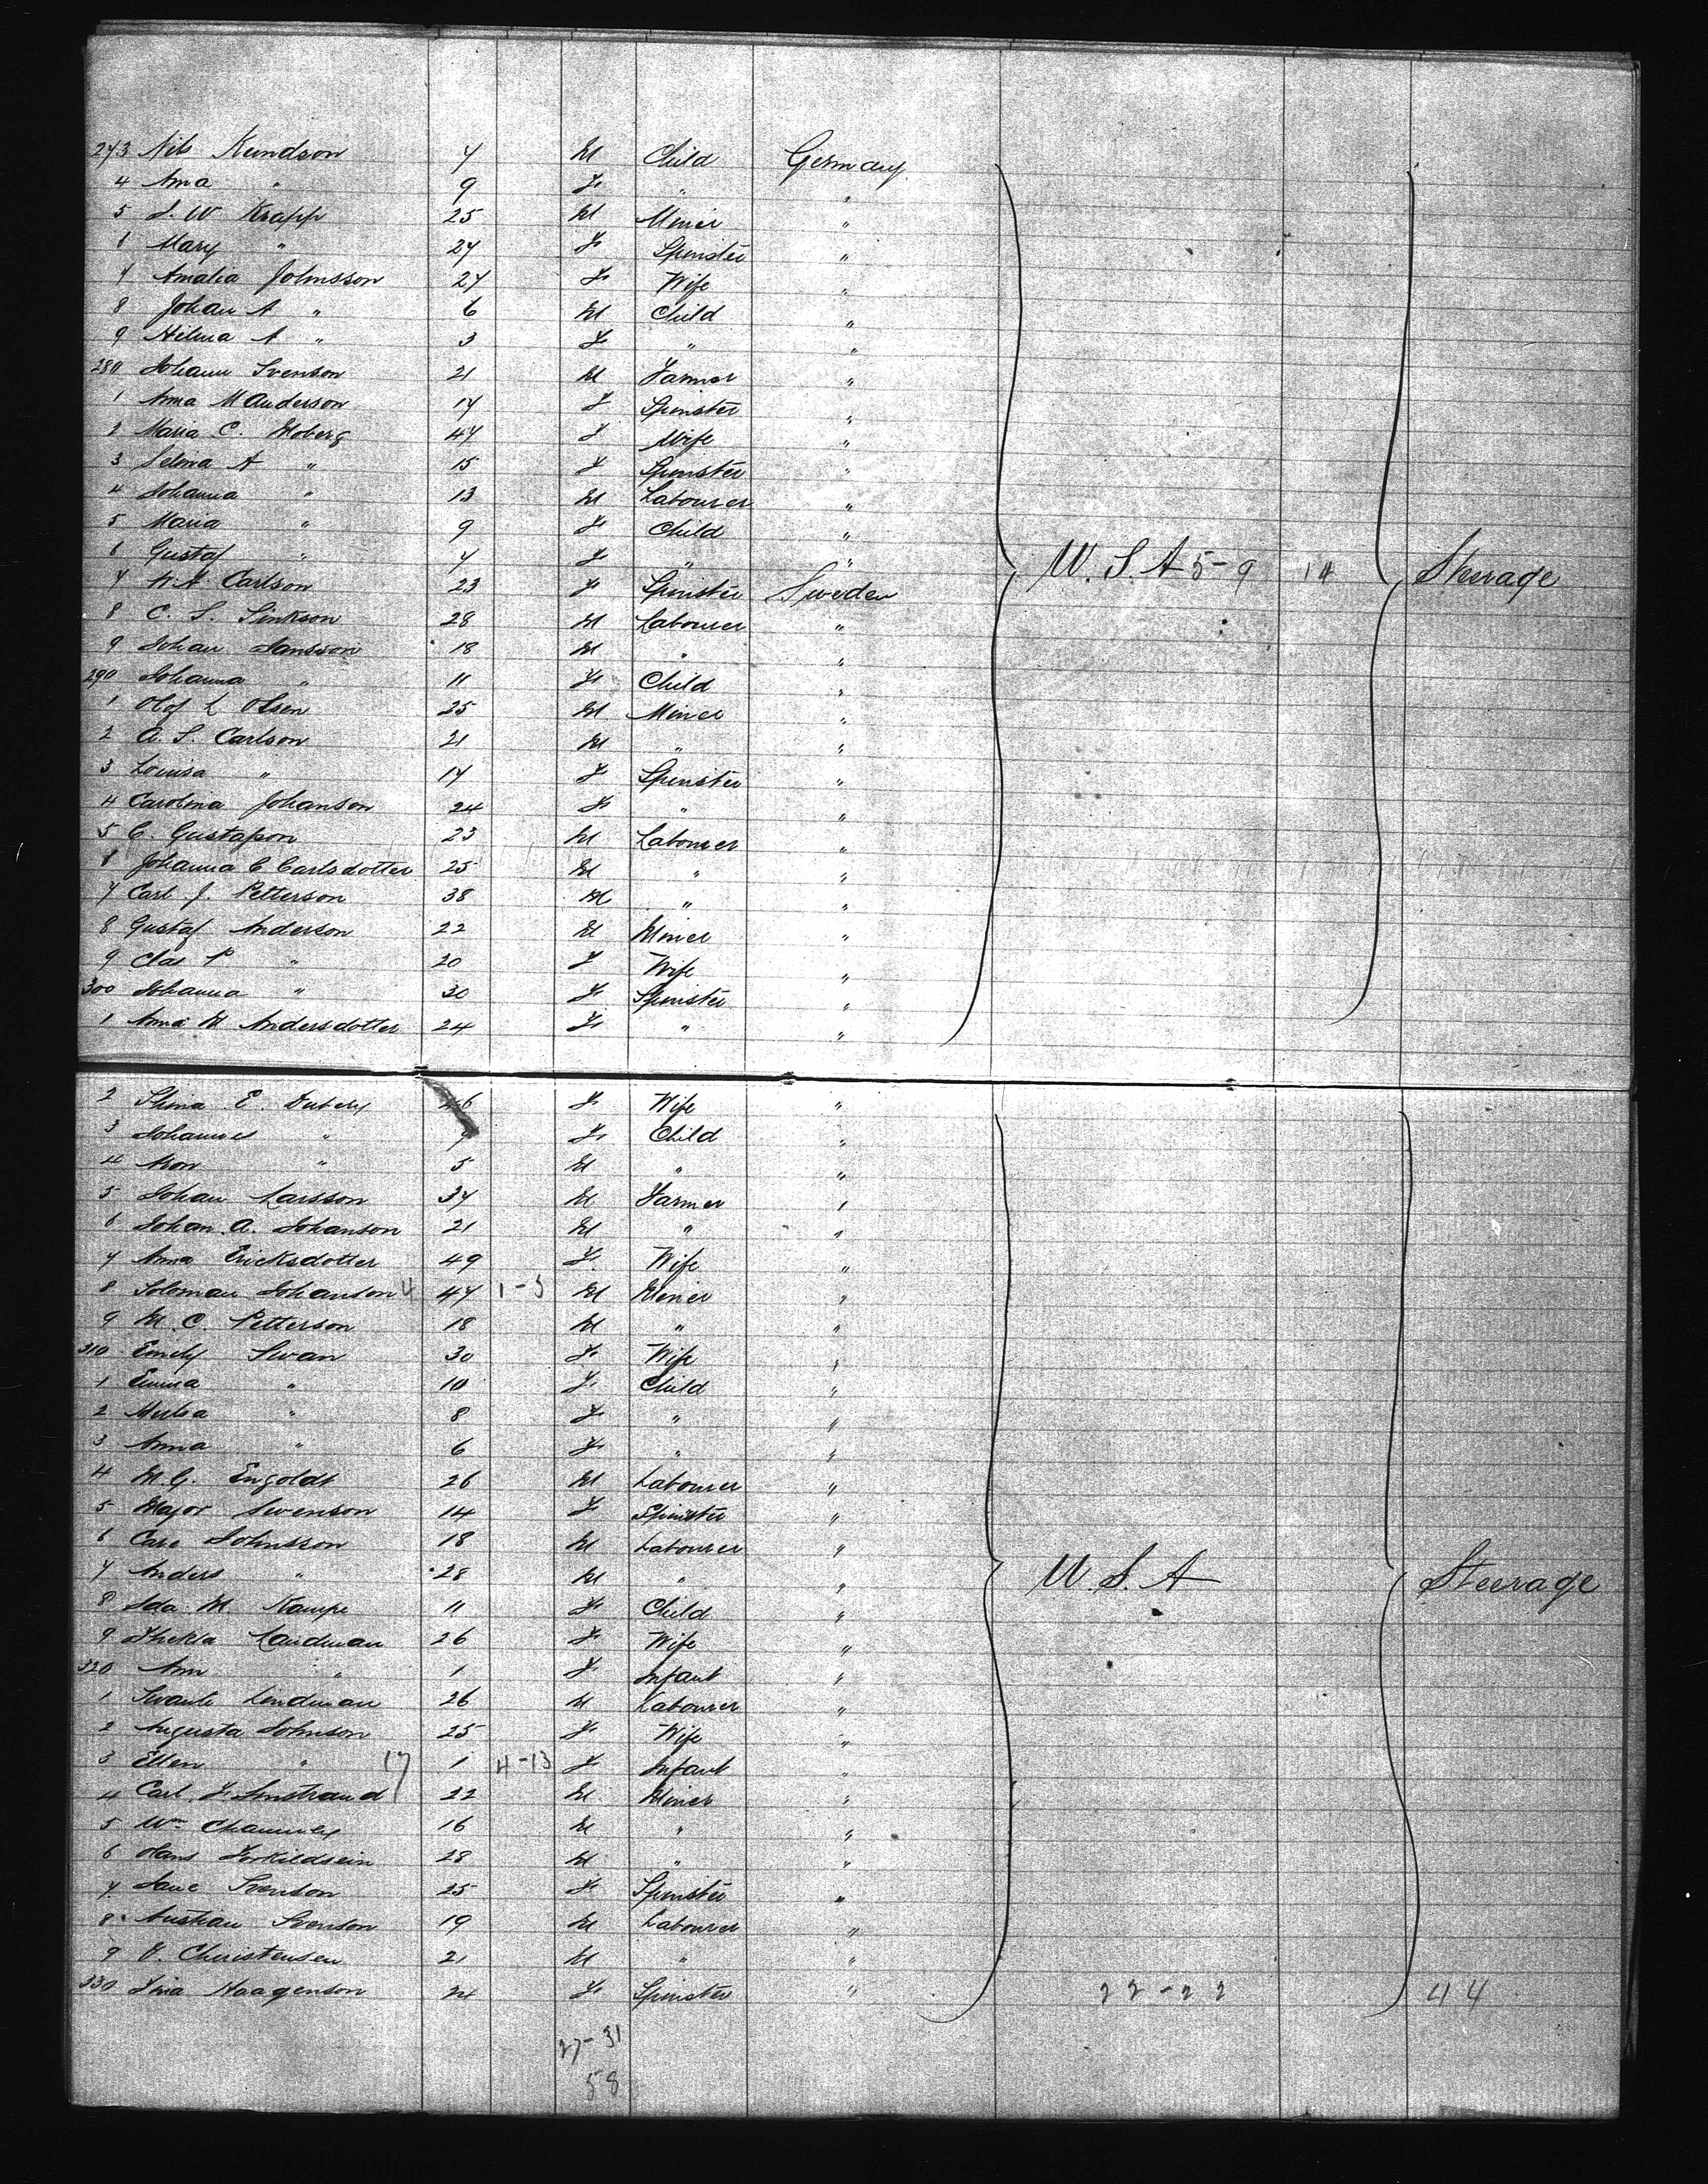 273 Nils Kundson 7 M Child Germany
4 Anna " 9 F "  "
5 J. W Krapp 25 M Miner "
6 Mary " 27 F Spinster "
7 Amalia Johnsson 27 F Wife "
8 Johan A " 6 M Child "
9 Hilma A " 3 F " "
280 Johann Svenson 21 M Farmer "
1 Anna M Anderson 17 F Spinster "
2 Maria C. Moberg 47 F Wife "
3 Selma A " 15 F Spinster "
4 Johanna " 13 M Labourer "
5 Maria " 9 F Child "
6 Gustaf " 7 F " "
7 N A Carlson 23 F Spinster Sweden U.S.A 5-9 14 Steerage
8 C. S. Sinkson 28 M Labourer "
9 Johan Jansson 18 M " "
290 Johanna " 11 F Child "
1 Olof L Olsen 25 M Miner "
2 A. S. Carlson 21 M " "
3 Louisa " 17 F Spinster "
4 Carolina Johanson 24 F " "
5 C. Gustafson 23 M Labourer "
6 Johanna C Carlsdotter 25 M " "
7 Carl J. Petterson 38 M " "
8 Gustaf Anderson 22 M Miner "
9 Clas P " 20 F Wife "
300 Johanna " 30 F Spinster "
1 Anna M Andersdotter 24 F " "
2 E. F Wife "
3 Johannes " 9 F Child "
4 Aron " 5 M " "
5 Johan Larsson 37 M Farmer "
6 Johan A. Johanson 21 M " "
7 Anna Ericksdotter 49 F Wife "
8 Soloman Johanson 4 47 1-3 M Miner "
9 M. C. Petterson 18 M " "
310 Emely Swan 30 F Wife "
1 Emma " 10 F Child "
2 " 8 F " "
3 Anna " 6 F " "
4 M. G. Engoldt 26 M Labourer "
5 Major Swenson 14 F Spinster "
6 Care Johnsson 18 M Labourer "
7 Anders " 28 M " " U.S.A Steerage
8 Ida M. Kampe 11 F Child "
9 Thekla Landman 26 F Wife "
320 Ann " 1 F Infant "
1 Lindman 26 M Labourer "
2 Augusta Johnson 25 F Wife "
3 Ellen " 17 1 4-13 F Infant "
4 Carl F. 22 M Miner "
5 Wm 16 M " "
6 Hans Torkildsein 28 M " "
7 Jane Svenson 25 F Spinster "
8 Svenson 19 M Labourer "
9 Christensen 21 M " "
330 Haagenson 24 F Spinster " 22-22 44
27-31
58